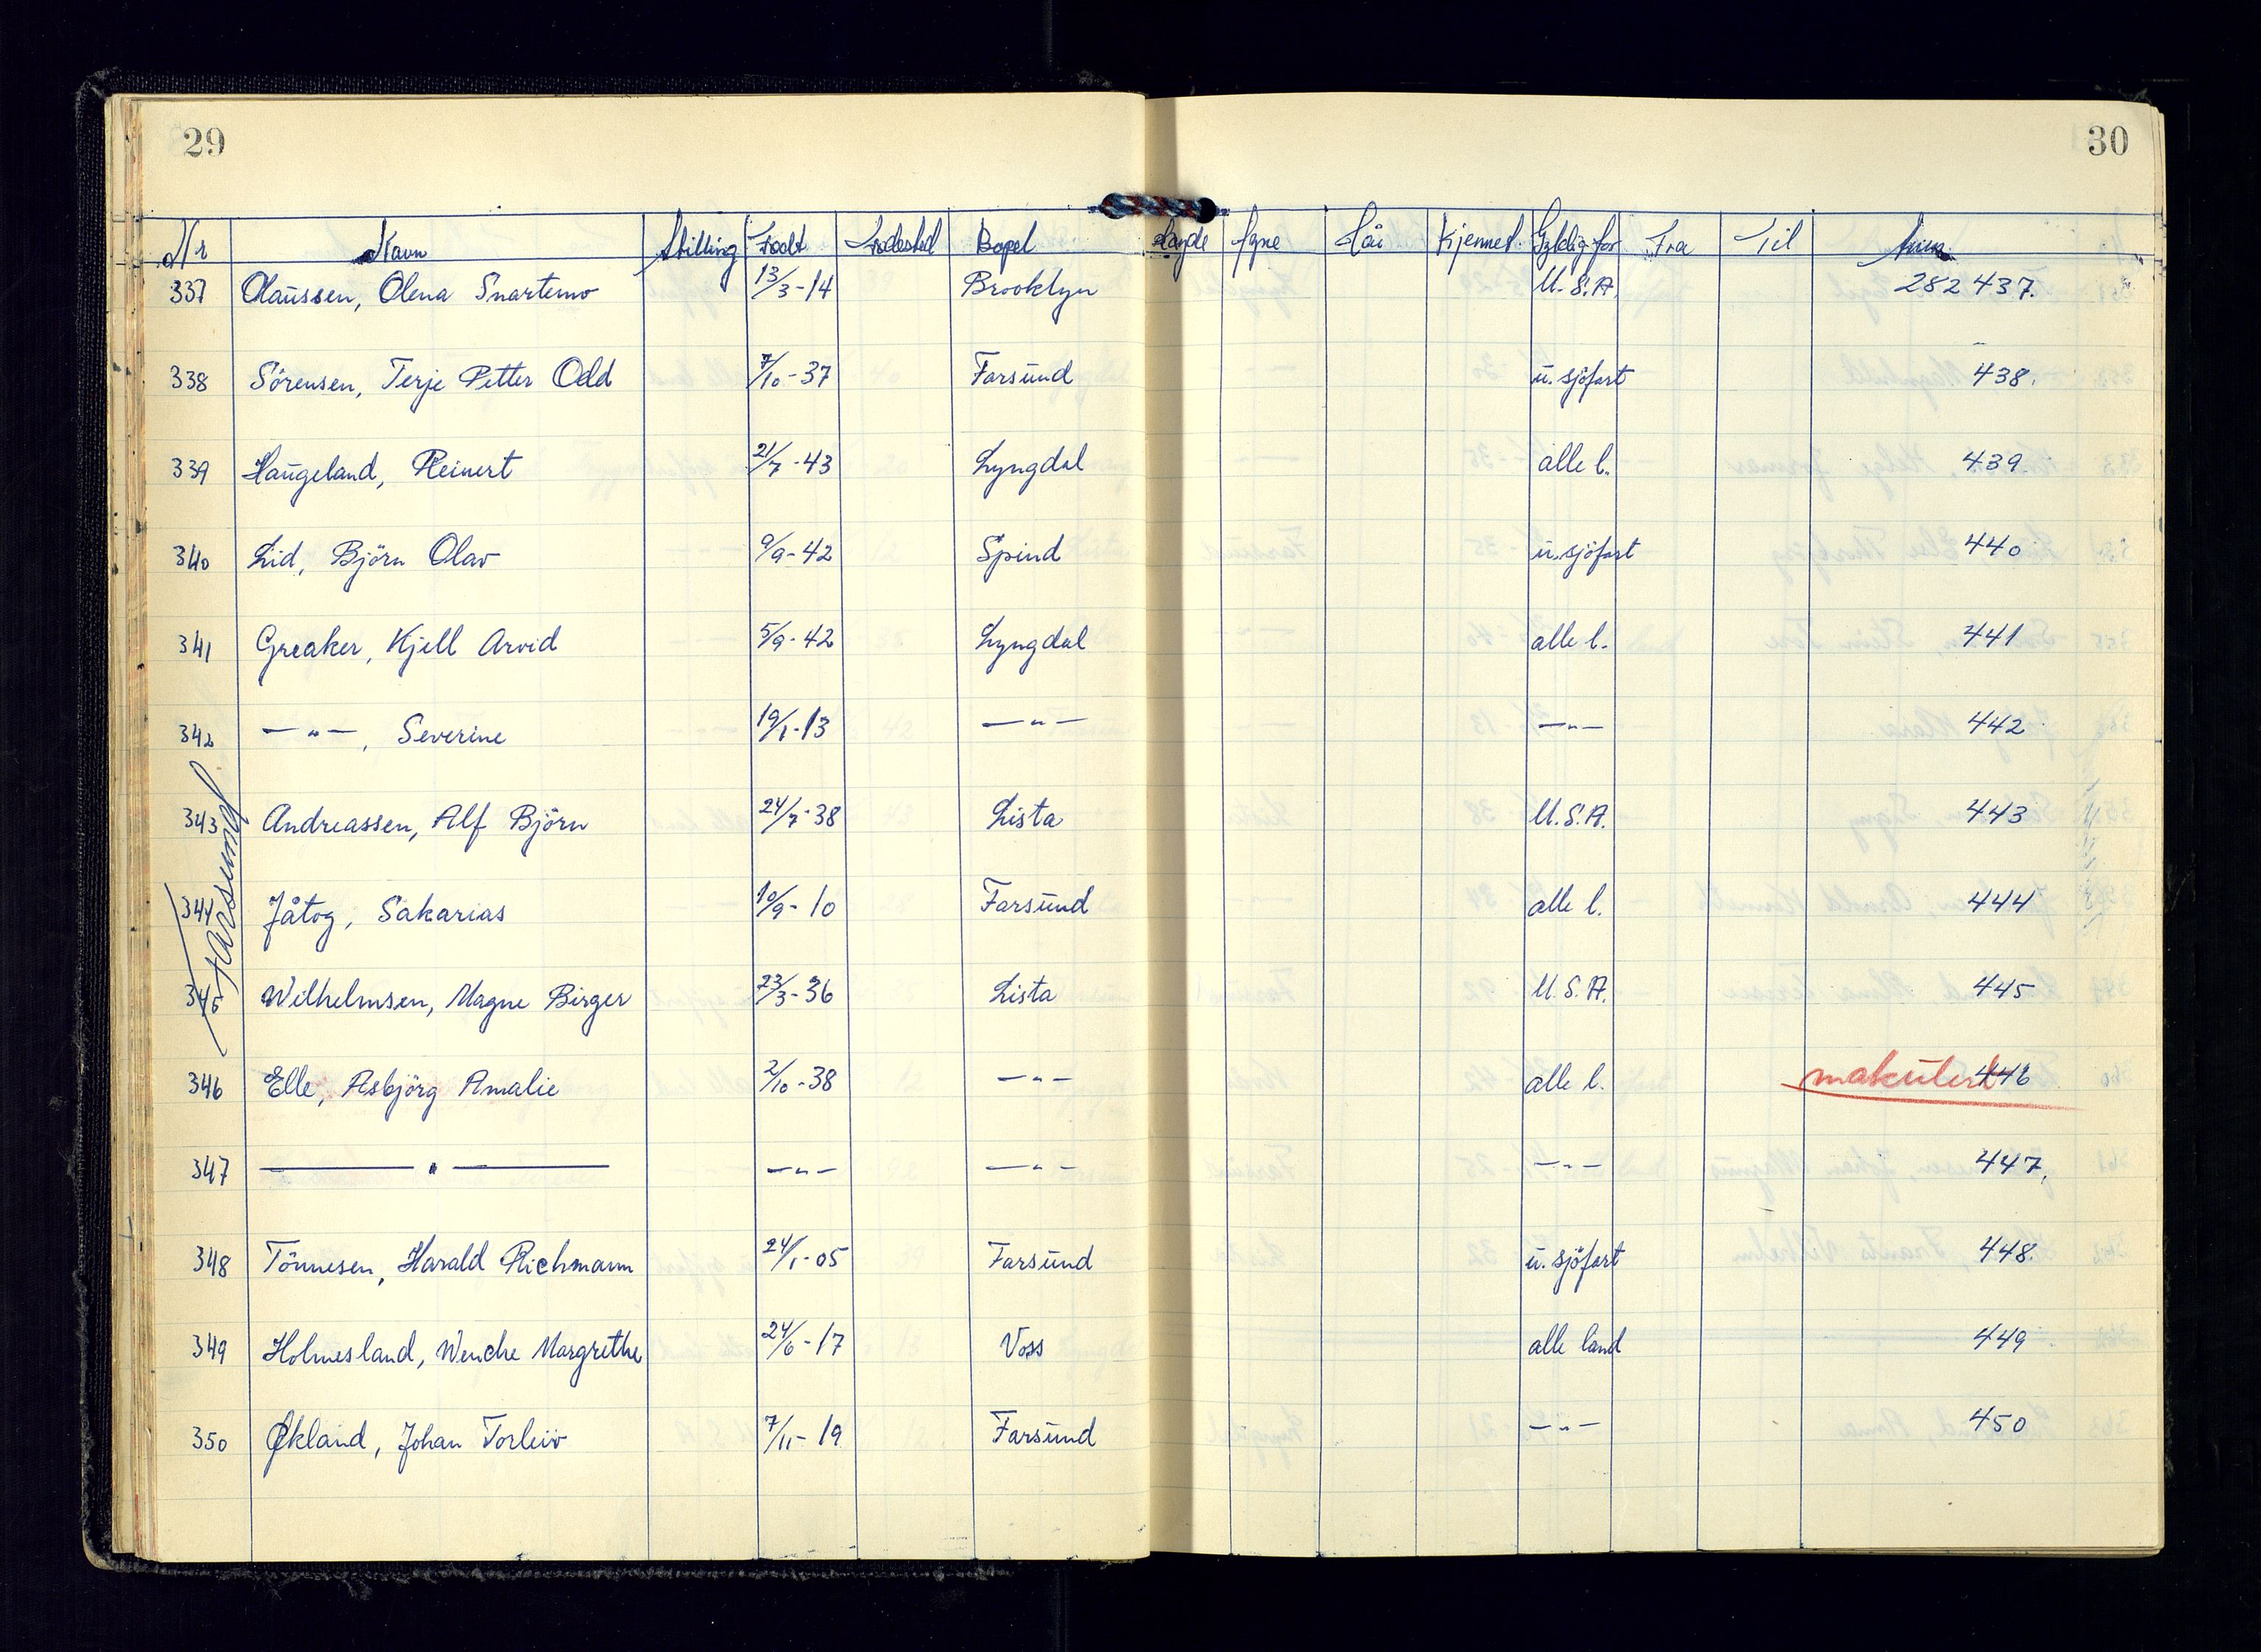 29
30
Nr Navn Stilling Født Fødested Bopel Høyde Øgne Hår Kjennet. Gyldig for Fra Til
337 Olaussen, Olena Snartemo 13/3-14 Brooklyn U.S.A. 282 437.
338 Sörensen, Terje Petter Odd 7/10-37 Farsund u. sjöfart 438.
339 Haugeland, Reinert 21/7-43 Lyngdal alle l. 439.
340 Lid, Björn Olav 9/9-42 Spind u. sjöfart 440
341 Greaker, Kjell Arvid 5/9-42 Lyngdal alle l. 441
342 — " —, Severine 19/1-13 — " — — " — 442
343 Andreassen, Alf Björn 24/7-38 Lista U.S.A. 443
Farsund
344 Jåtog, Sakarias 10/9-10 Farsund alle l. 444
345 Wilhelmsen, Magne Birger 23/3-36 Lista U.S.A. 445
346 Elle, Asbjörg Amalie 2/10-38 — " — alle l. makulert 446
347 — " — — " — — " — — " — 447.
348 Tönnesen, Harald Richmann 24/1-05 Farsund u. sjöfart 448.
349 Holmesland, Wenche Margrethe 24/6-17 Voss alle land 449
350 Økland, Johan Torleiv 7/11-19 Farsund — " — 450